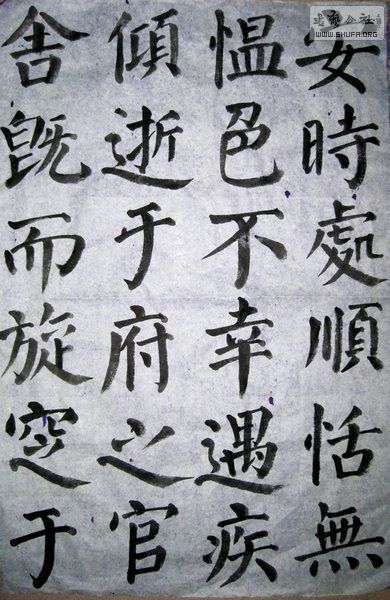 安時處順恬無
愠色不幸遇疾
傾逝于府之官
舍既而旋窆于
WWW.SHUFA.ORG